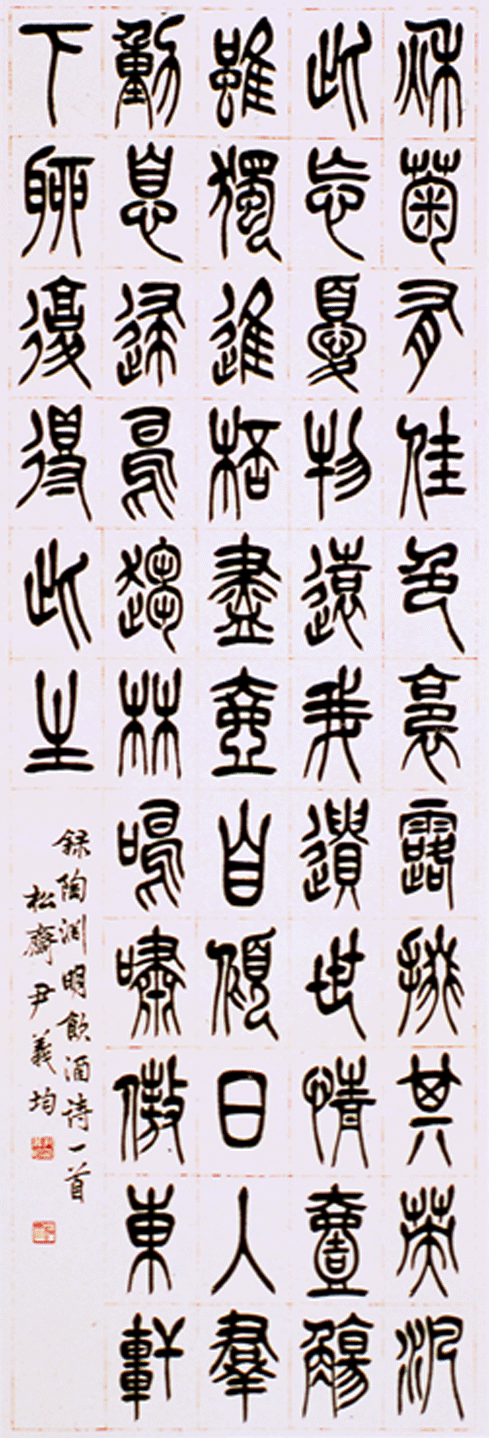 秋菊有佳色裛露掇其英汎
此忘憂物遠我遺世情壹觴
雖獨進桮盡壺自傾日入羣
動息歸鳥趨林鳴嘯傲東軒
下聊復得此生
録陶淵明飲酒诗一首
松齋尹義均